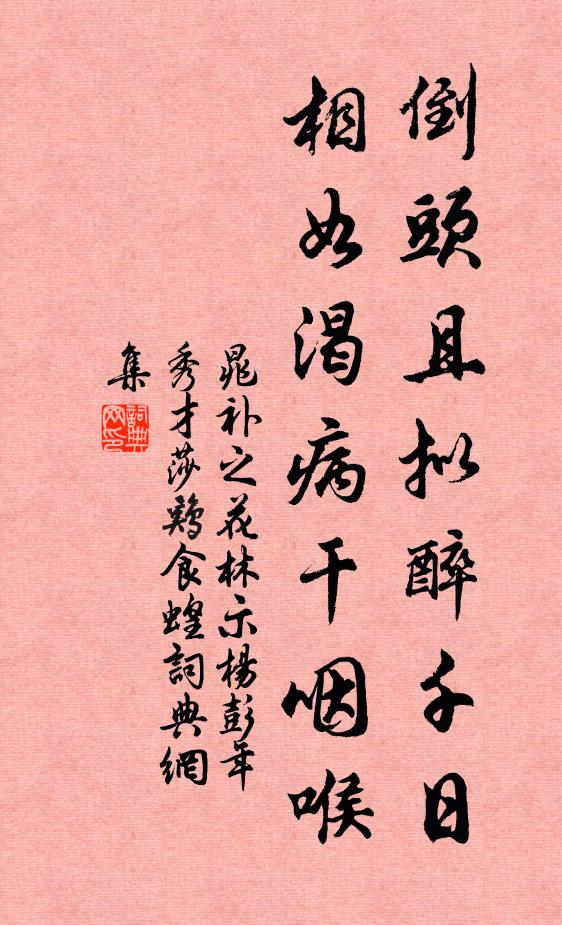 倒頭且拟醉千日
相如渴病干咽喉
晁补之花林示楊彭年
秀才莎鷄食蝗詞典網
集
詞典网印